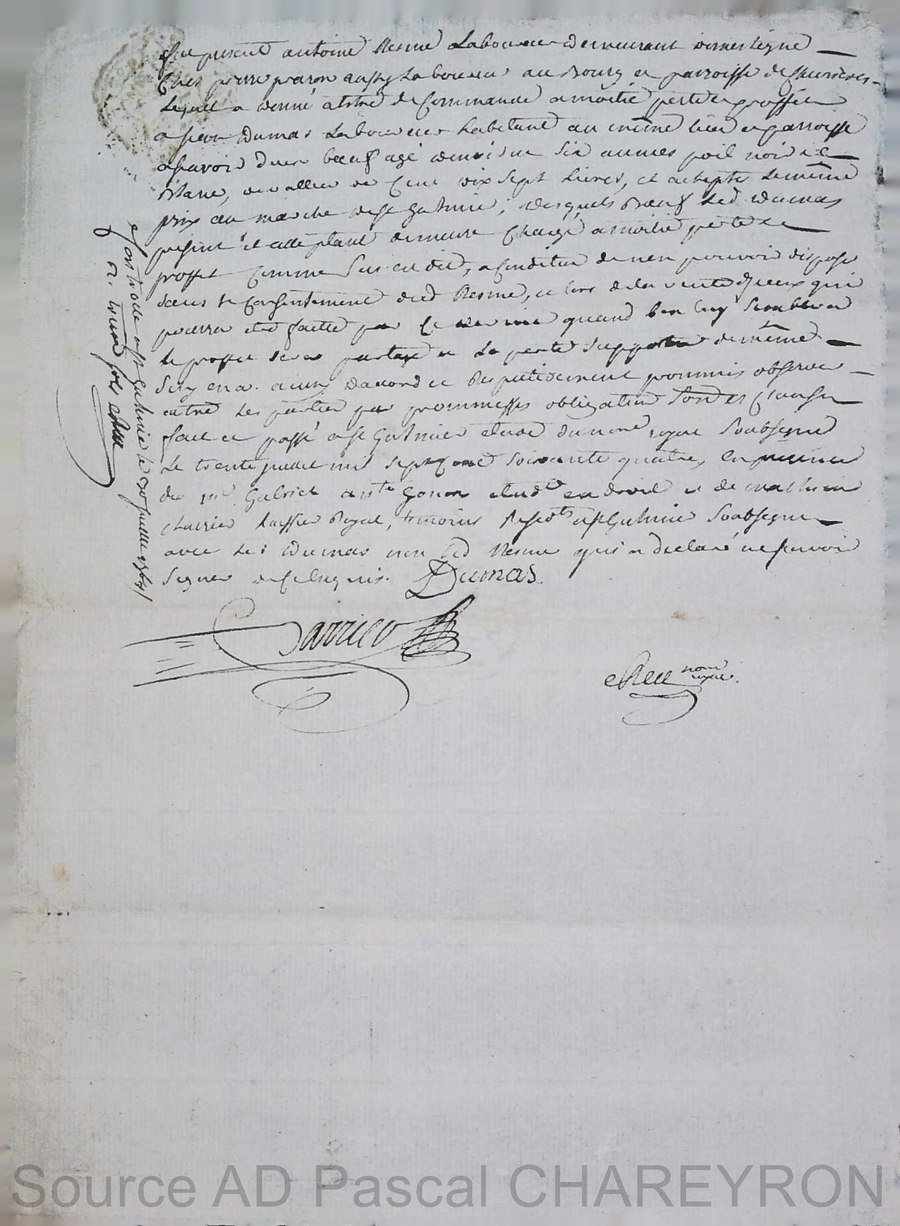 Fut present antoine Resme Laboureur demeurant
Ches pierre aussy Laboureur au Bourg et parroisse de
Lequel a donné a titre de Commande a moitié perte et proffit
a Dumas Laboureur habitant au même lieu et parroisse
a savoir deux bœufs agé d'environ six années poil noir et
blanc, de valleur de Cent dix sept Livres, et accepté Le même
prix au marché de St Galmier, desquels Bœufs Led. Dumas
present et acceptant demeure Chargé a moitié perte et
proffit Comme sus est dit, a Condition de n'en pouvoir disposer
sans Le Consentement dud. Resme, et lors de la vente d'yceux qui
pourra etre faitte par Ce dernier quand bon luy semblera
Le proffit sera partagé et La perte supportée de même
Cecy en a ainsy d'accord et Respectivement promis observer
entre les parties par prommesses obligation Soumis Clauses
fait et passé a St Galmier etude du not. royal Soubsigné
Le trente juillet mil sept Cent soixante quatre, En presence
de me Gabriel ante Gonon etudt en droit et de mathieu
huissier Royal, temoins Resid.ts a St Galmier Soubsignés
avec Led. Dumas non Led. Resme qui a declaré ne sçavoir
signer de ce Enquis. Dumas
notre royal.
Controllé a St Galmier le juillet 1764
Rt treize sols
Source AD Pascal CHAREYRON